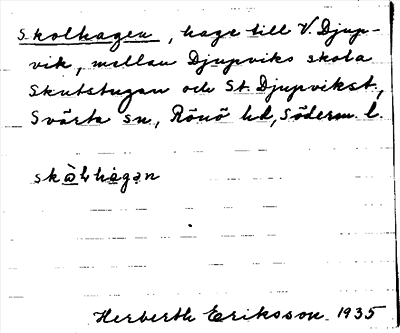 Skolhagen, hage till V. Djup-
vik, mellan Djupviks skola
Skutstugan och St. Djupvikst.,
Svärta sn., Rönö hd, Söderm. l.
Herberth Eriksson 1935